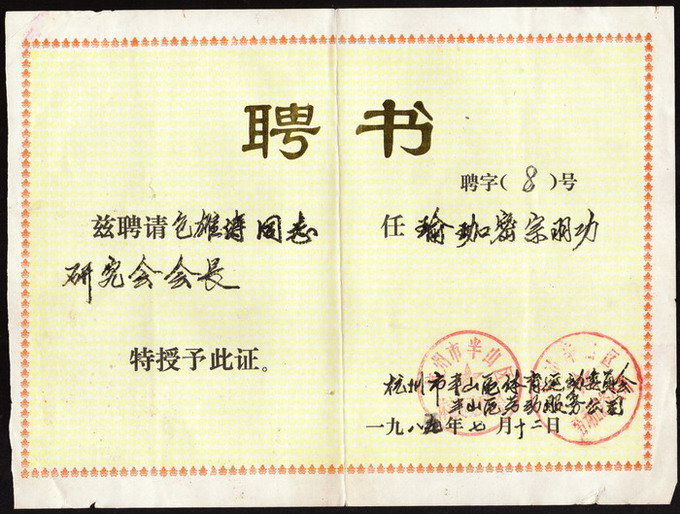 聘书
聘字( 8 )号
兹聘请包雄涛同志 任 瑜珈密宗功
研究会会长
特授予此证。
杭州市半山区体育运动委员会
半山区劳动服务公司
一九八 年七月十二日
州市半山区